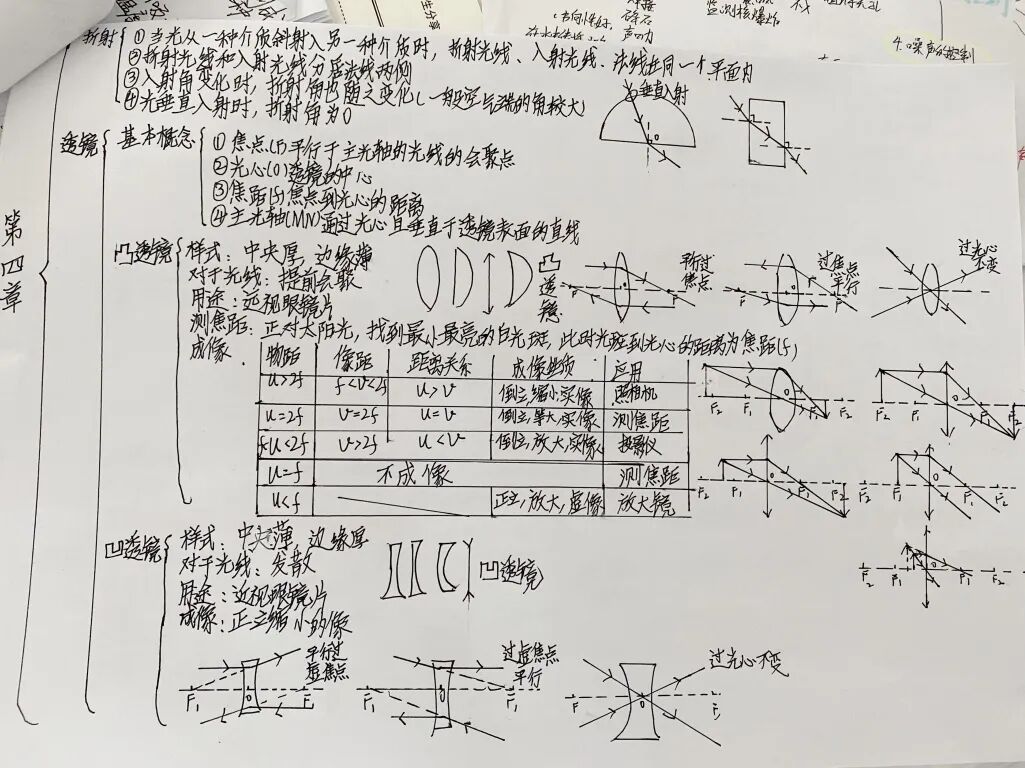 4.噪声的控制
第四章
折射
①当光从一种介质斜射入另一种介质时，折射光线、入射光线、法线在同一个平面内
②折射光线和入射光线分居法线两侧
③入射角变化时，折射角也随之变化(一般空气端的角较大)
④光垂直入射时，折射角为0
垂直入射
透镜
基本概念
①焦点(F)平行于主光轴的光线的会聚点
②光心(O)透镜的中心
③焦距(f)焦点到光心的距离
④主光轴(MN)通过光心且垂直于透镜表面的直线
凸透镜
样式：中央厚，边缘薄
对于光线：提前会聚
用途：远视眼镜片
测焦距：正对太阳光，找到最小最亮的白光斑，此时光斑到光心的距离为焦距(f)
凸透镜
平行过焦点
过焦点平行
过光心不变
成像
物距 像距 距离关系 成像性质 应用
u>2f f<v<2f u>v 倒立,缩小,实像 照相机
u=2f v=2f u=v 倒立,等大,实像 测焦距
f<u<2f v>2f u<v 倒立,放大,实像 投影仪
u=f 不成像 测焦距
u<f 正立,放大,虚像 放大镜
凹透镜
样式：中央薄，边缘厚
对于光线：发散
用途：近视眼镜片
成像：正立缩小的像
凹透镜
平行过虚焦点
过虚焦点平行
过光心不变